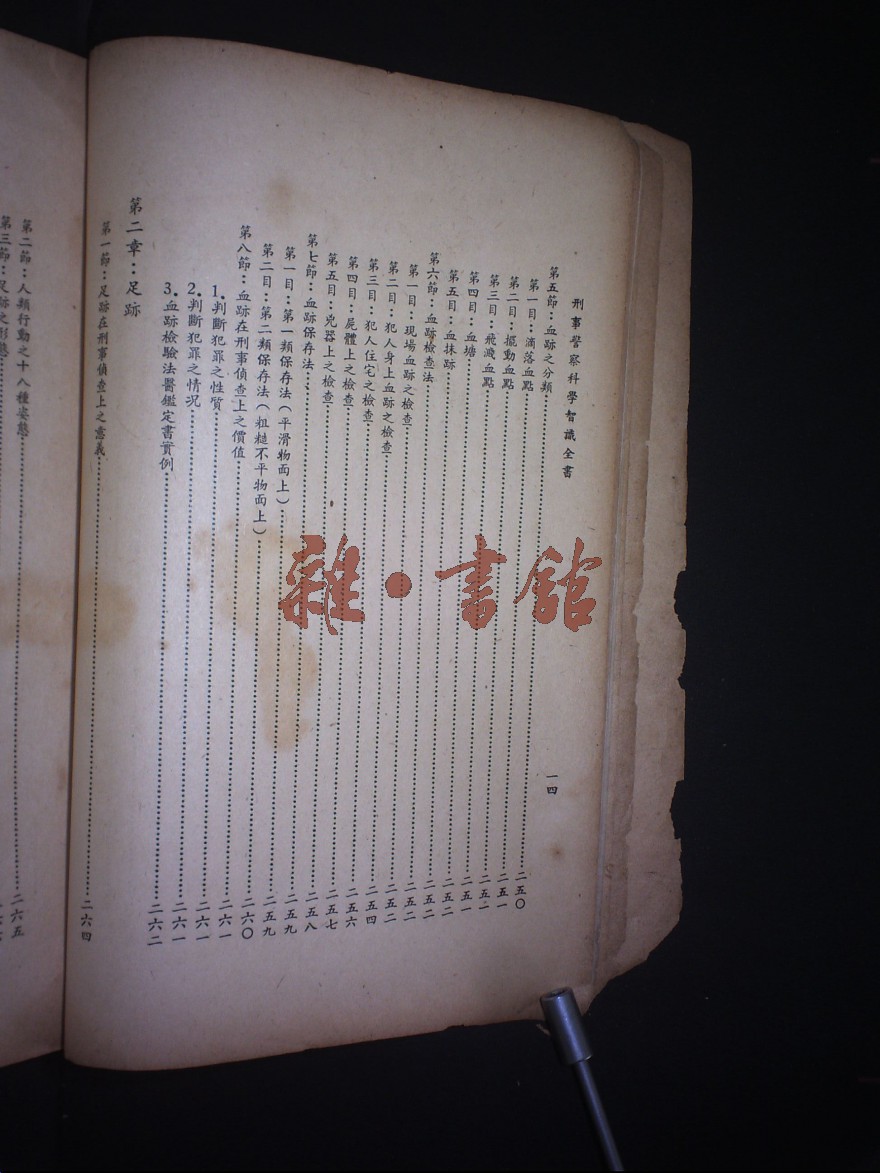 刑事警察科學智識全書
一四
第五節：血跡之分類……二五〇
第一目：滴落血點……二五一
第二目：擺動血點……二五一
第三目：飛濺血點……二五一
第四目：血塘……二五一
第五目：血抹跡……二五二
第六節：血跡檢查法……二五二
第一目：現場血跡之檢查……二五二
第二目：犯人身上血跡之檢查……二五二
第三目：犯人住宅之檢查……二五四
第四目：屍體上之檢查……二五六
第五目：兇器上之檢查……二五七
第七節：血跡保存法……二五八
第一目：第一類保存法（平滑物面上）……二五九
第二目：第二類保存法（粗糙不平物面上）……二五九
第八節：血跡在刑事偵查上之價值……二六〇
1.判斷犯罪之性質……二六一
2.判斷犯罪之情況……二六一
3.血跡檢驗法醫鑑定書實例……二六二
第二章：足跡
第一節：足跡在刑事偵查上之意義……二六四
第二節：人類行動之十八種姿態……二六五
第三節：足跡之形態
雜·書館